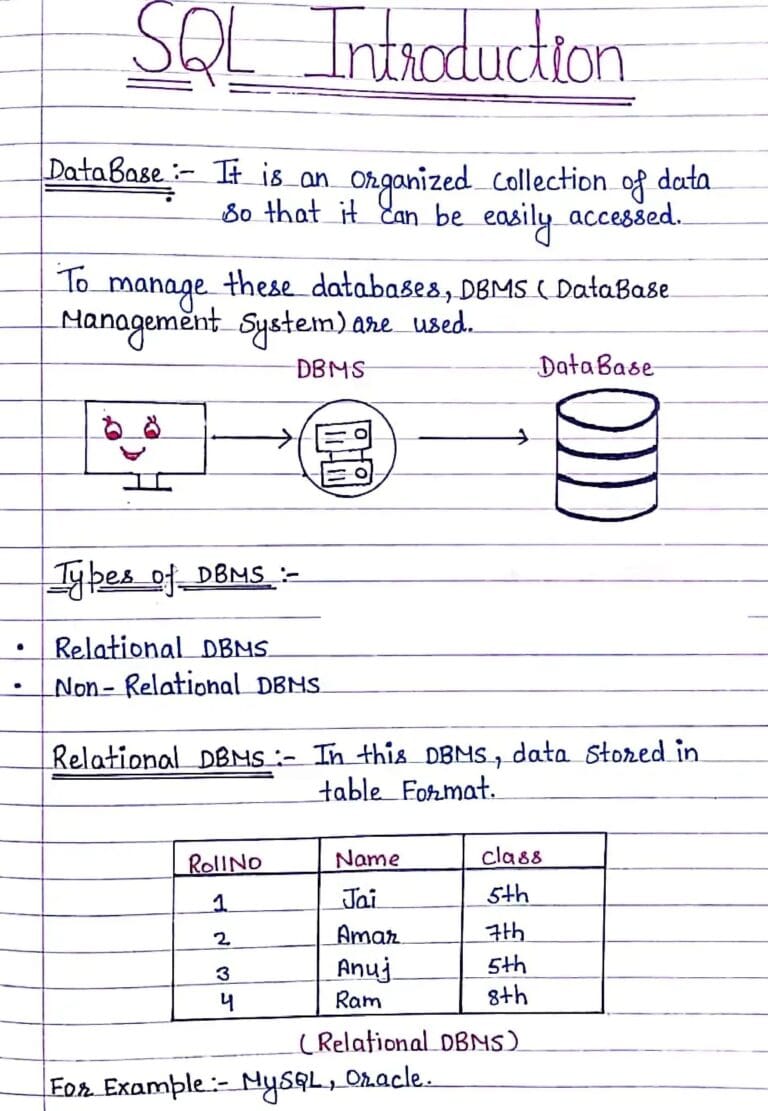 SQL Introduction
DataBase :- It is an organized collection of data
so that it can be easily accessed.
To manage these databases, DBMS ( DataBase
Management System) are used.
DBMS DataBase
Types of DBMS :-
• Relational DBMS
• Non-Relational DBMS
Relational DBMS :- In this DBMS, data Stored in
table Format.
RollNo Name Class
1 Jai 5th
2 Amar 7th
3 Anuj 5th
4 Ram 8th
(Relational DBMS)
For Example :- MySQL, Oracle.